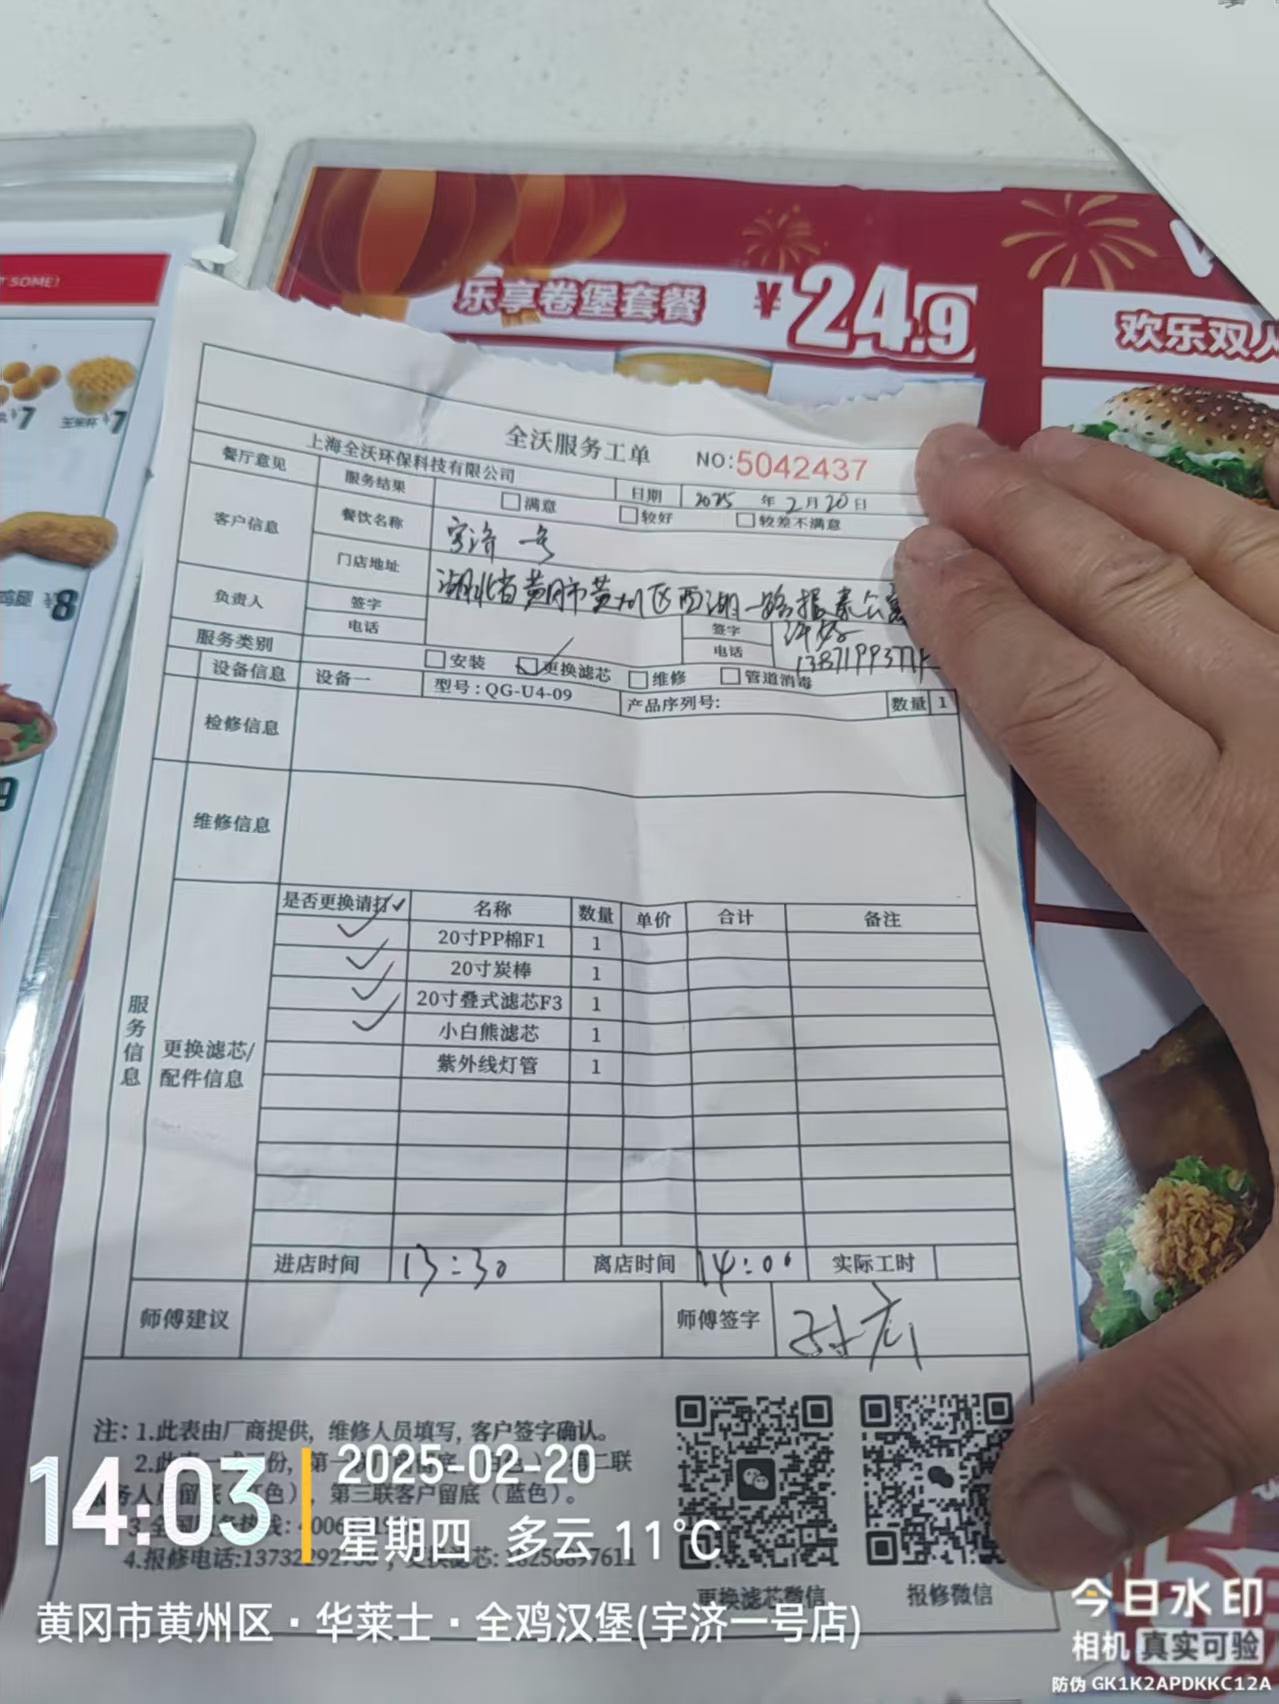 T SOME!
¥7
玉米杯 ¥7
鸡腿 ¥8
9
乐享卷堡套餐 ¥24.9
欢乐双人
全沃服务工单
NO:5042437
上海全沃环保科技有限公司
日期 2025 年 2 月 20 日
餐厅意见 服务结果 满意 较好 较差不满意
客户信息 餐饮名称 宇济一号
门店地址 湖北省黄冈市黄州区西湖一路报春公寓
负责人 签字 签字
电话 电话
服务类别 安装 更换滤芯 维修 管道消毒
设备信息 设备一 型号:QG-U4-09 产品序列号: 数量 1
检修信息
维修信息
服务信息
更换滤芯/配件信息
是否更换请打✓ 名称 数量 单价 合计 备注
✓ 20寸PP棉F1 1
✓ 20寸炭棒 1
✓ 20寸叠式滤芯F3 1
✓ 小白熊滤芯 1
紫外线灯管 1
进店时间 13:30 离店时间 14:00 实际工时
师傅建议 师傅签字
注:1.此表由厂商提供,维修人员填写,客户签字确认。
2.此表一式三份,第一
第二联
),第三联客户留底(蓝色)。
4.报修电话:
更换滤芯微信 报修微信
14:03
2025-02-20
星期四 多云 11°C
黄冈市黄州区·华莱士·全鸡汉堡(宇济一号店)
今日水印
相机 真实可验
防伪 GK1K2APDKKC12A